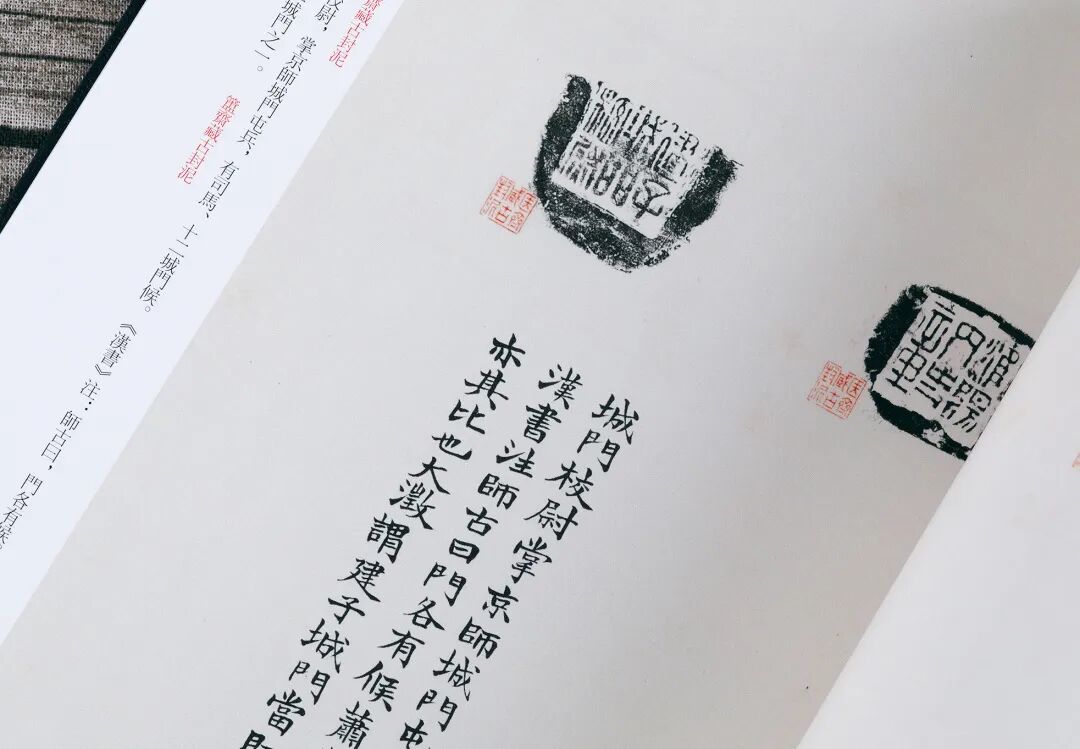 医齋藏古封泥
医齋藏古封泥
城門校尉掌京師城門屯
漢書注師古曰門各有候蕭
亦其比也大澂謂建子城門當
齋藏古封泥
尉，掌京師城門屯兵，有司馬、十二城門候。《漢書》注：師古曰，門各有候。
城門之一。 簠齋藏古封泥